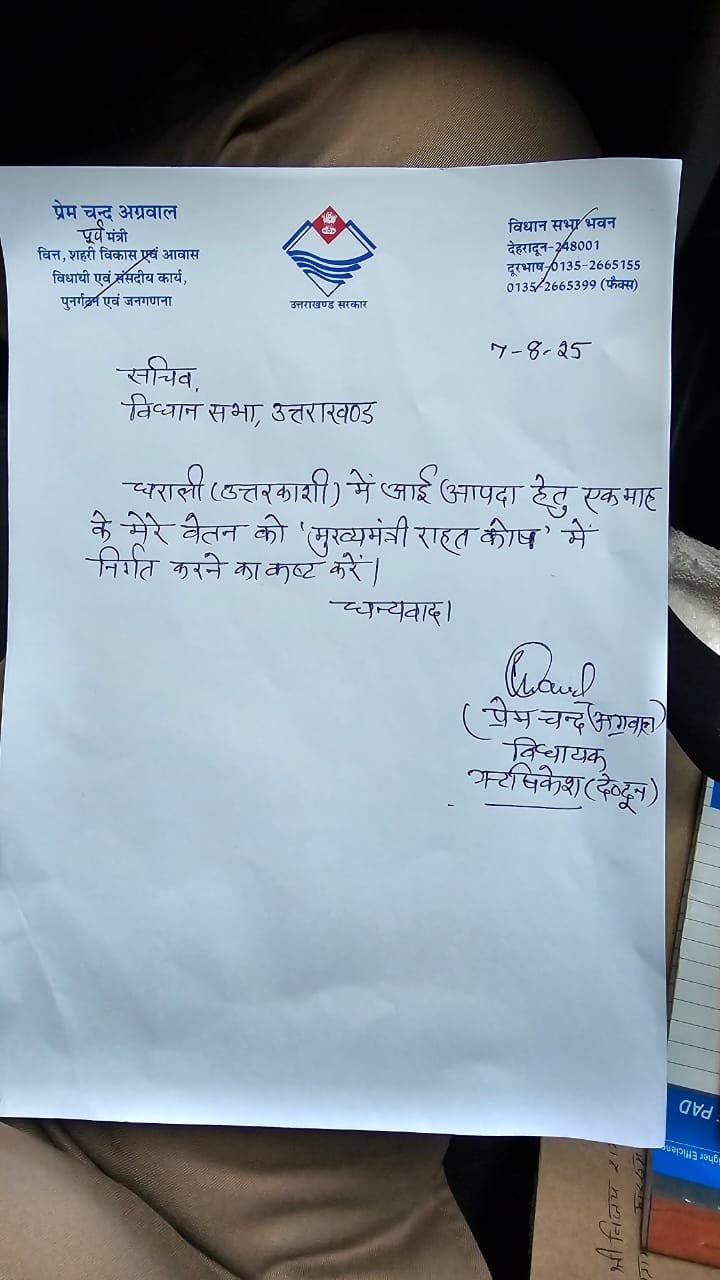 प्रेम चन्द अग्रवाल
पूर्व मंत्री
वित्त, शहरी विकास एवं आवास
विधायी एवं संसदीय कार्य,
पुनर्गठन एवं जनगणना
उत्तराखण्ड सरकार
विधान सभा भवन
देहरादून-248001
दूरभाष-0135-2665155
0135-2665399 (फैक्स)
7-8-25
सचिव,
विधान सभा, उत्तराखण्ड
धराली (उत्तरकाशी) में आई आपदा हेतु एक माह
के मेरे वेतन को 'मुख्यमंत्री राहत कोष' में
निर्गत करने का कष्ट करें।
धन्यवाद।
(प्रेम चन्द अग्रवाल)
विधायक
ऋषिकेश (दे०दून)
PAD
gher Efficienc
श्री विजय